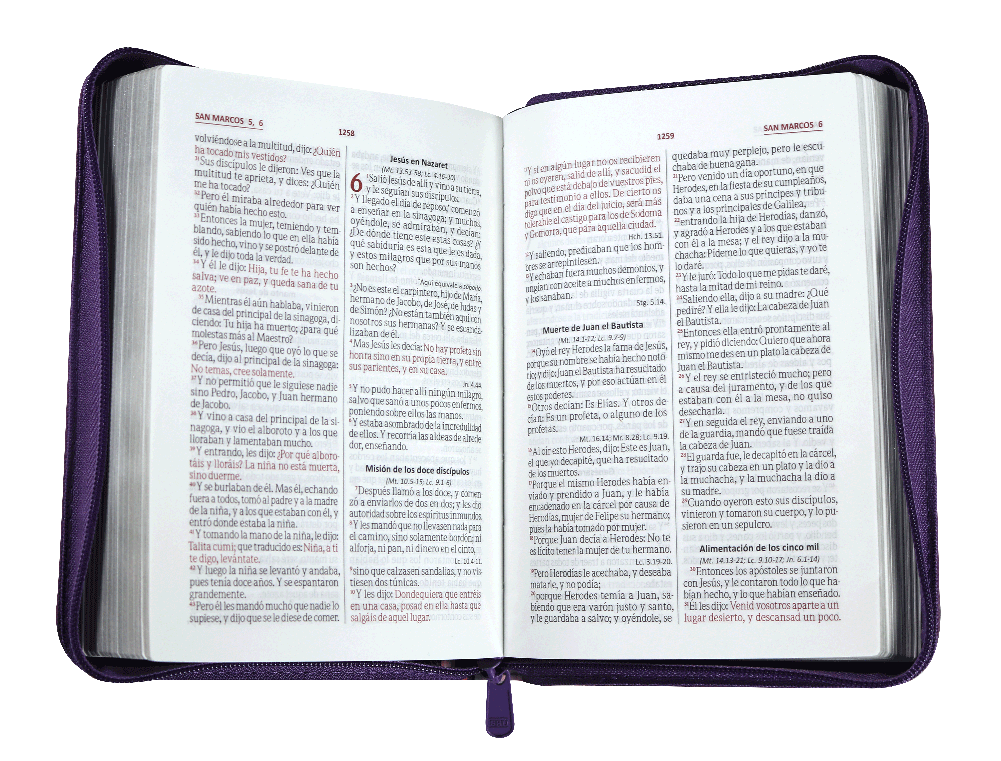 SAN MARCOS 5, 6
1258
volviéndose a la multitud, dijo: ¿Quién
ha tocado mis vestidos?
31Sus discípulos le dijeron: Ves que la
multitud te aprieta, y dices: ¿Quién
me ha tocado?
32Pero él miraba alrededor para ver
quién había hecho esto.
33Entonces la mujer, temiendo y tem-
blando, sabiendo lo que en ella había
sido hecho, vino y se postró delante de
él, y le dijo toda la verdad.
34Y él le dijo: Hija, tu fe te ha hecho
salva; ve en paz, y queda sana de tu
azote.
35Mientras él aún hablaba, vinieron
de casa del principal de la sinagoga, di-
ciendo: Tu hija ha muerto; ¿para qué
molestas más al Maestro?
36Pero Jesús, luego que oyó lo que se
decía, dijo al principal de la sinagoga:
No temas, cree solamente.
37Y no permitió que le siguiese nadie
sino Pedro, Jacobo, y Juan hermano
de Jacobo.
38Y vino a casa del principal de la si-
nagoga, y vio el alboroto y a los que
lloraban y lamentaban mucho.
39Y entrando, les dijo: ¿Por qué alboro-
táis y lloráis? La niña no está muerta,
sino duerme.
40Y se burlaban de él. Mas él, echando
fuera a todos, tomó al padre y a la madre
de la niña, y a los que estaban con él, y
entró donde estaba la niña.
41Y tomando la mano de la niña, le dijo:
Talita cumi; que traducido es: Niña, a ti
te digo, levántate.
42Y luego la niña se levantó y andaba,
pues tenía doce años. Y se espantaron
grandemente.
43Pero él les mandó mucho que nadie lo
supiese, y dijo que se le diese de comer.
Jesús en Nazaret
(Mt. 13.53-58; Lc. 4.16-30)
6 1Salió Jesús de allí y vino a su tierra,
y le seguían sus discípulos.
2Y llegado el día de reposo,* comenzó
a enseñar en la sinagoga; y muchos,
oyéndole, se admiraban, y decían:
¿De dónde tiene éste estas cosas? ¿Y
qué sabiduría es esta que le es dada,
y estos milagros que por sus manos
son hechos?
*Aquí equivale a sábado.
3¿No es éste el carpintero, hijo de María,
hermano de Jacobo, de José, de Judas y
de Simón? ¿No están también aquí con
nosotros sus hermanas? Y se escanda-
lizaban de él.
4Mas Jesús les decía: No hay profeta sin
honra sino en su propia tierra, y entre
sus parientes, y en su casa.
Jn. 4.44.
5Y no pudo hacer allí ningún milagro,
salvo que sanó a unos pocos enfermos,
poniendo sobre ellos las manos.
6Y estaba asombrado de la incredulidad
de ellos. Y recorría las aldeas de alrede
dor, enseñando.
Misión de los doce discípulos
(Mt. 10.5-15; Lc. 9.1-6)
7Después llamó a los doce, y comen
zó a enviarlos de dos en dos; y les dio
autoridad sobre los espíritus inmundos.
8Y les mandó que no llevasen nada para
el camino, sino solamente bordón; ni
alforja, ni pan, ni dinero en el cinto,
Lc. 10.4-11.
9sino que calzasen sandalias, y no vis-
tiesen dos túnicas.
10Y les dijo: Dondequiera que entréis
en una casa, posad en ella hasta que
salgáis de aquel lugar.
1259
SAN MARCOS 6
11Y si en algún lugar no os recibieren
ni os oyeren, salid de allí, y sacudid el
polvo que está debajo de vuestros pies,
para testimonio a ellos. De cierto os
digo que en el día del juicio, será más
tolerable el castigo para los de Sodoma
y Gomorra, que para aquella ciudad.
Hch. 13.51.
12Y saliendo, predicaban que los hom-
bres se arrepintiesen.
13Y echaban fuera muchos demonios, y
ungían con aceite a muchos enfermos,
y los sanaban.
Stg. 5.14.
Muerte de Juan el Bautista
(Mt. 14.1-12; Lc. 9.7-9)
14Oyó el rey Herodes la fama de Jesús,
porque su nombre se había hecho noto
rio; y dijo: Juan el Bautista ha resucitado
de los muertos, y por eso actúan en él
estos poderes.
15Otros decían: Es Elías. Y otros de-
cían: Es un profeta, o alguno de los
profetas.
Mt. 16.14; Mr. 8.28; Lc. 9.19.
16Al oír esto Herodes, dijo: Este es Juan,
el que yo decapité, que ha resucitado
de los muertos.
17Porque el mismo Herodes había en-
viado y prendido a Juan, y le había
encadenado en la cárcel por causa de
Herodías, mujer de Felipe su hermano;
pues la había tomado por mujer.
18Porque Juan decía a Herodes: No te
es lícito tener la mujer de tu hermano.
Lc. 3.19-20.
19Pero Herodías le acechaba, y deseaba
matarle, y no podía;
20porque Herodes temía a Juan, sa-
biendo que era varón justo y santo,
y le guardaba a salvo; y oyéndole, se
quedaba muy perplejo, pero le escu-
chaba de buena gana.
21Pero venido un día oportuno, en que
Herodes, en la fiesta de su cumpleaños,
daba una cena a sus príncipes y tribu-
nos y a los principales de Galilea,
22entrando la hija de Herodías, danzó,
y agradó a Herodes y a los que estaban
con él a la mesa; y el rey dijo a la mu-
chacha: Pídeme lo que quieras, y yo te
lo daré.
23Y le juró: Todo lo que me pidas te daré,
hasta la mitad de mi reino.
24Saliendo ella, dijo a su madre: ¿Qué
pediré? Y ella le dijo: La cabeza de Juan
el Bautista.
25Entonces ella entró prontamente al
rey, y pidió diciendo: Quiero que ahora
mismo me des en un plato la cabeza de
Juan el Bautista.
26Y el rey se entristeció mucho; pero
a causa del juramento, y de los que
estaban con él a la mesa, no quiso
desecharla.
27Y en seguida el rey, enviando a uno
de la guardia, mandó que fuese traída
la cabeza de Juan.
28El guarda fue, le decapitó en la cárcel,
y trajo su cabeza en un plato y la dio a
la muchacha, y la muchacha la dio a
su madre.
29Cuando oyeron esto sus discípulos,
vinieron y tomaron su cuerpo, y lo pu-
sieron en un sepulcro.
Alimentación de los cinco mil
(Mt. 14.13-21; Lc. 9.10-17; Jn. 6.1-14)
30Entonces los apóstoles se juntaron
con Jesús, y le contaron todo lo que ha-
bían hecho, y lo que habían enseñado.
31Él les dijo: Venid vosotros aparte a un
lugar desierto, y descansad un poco.